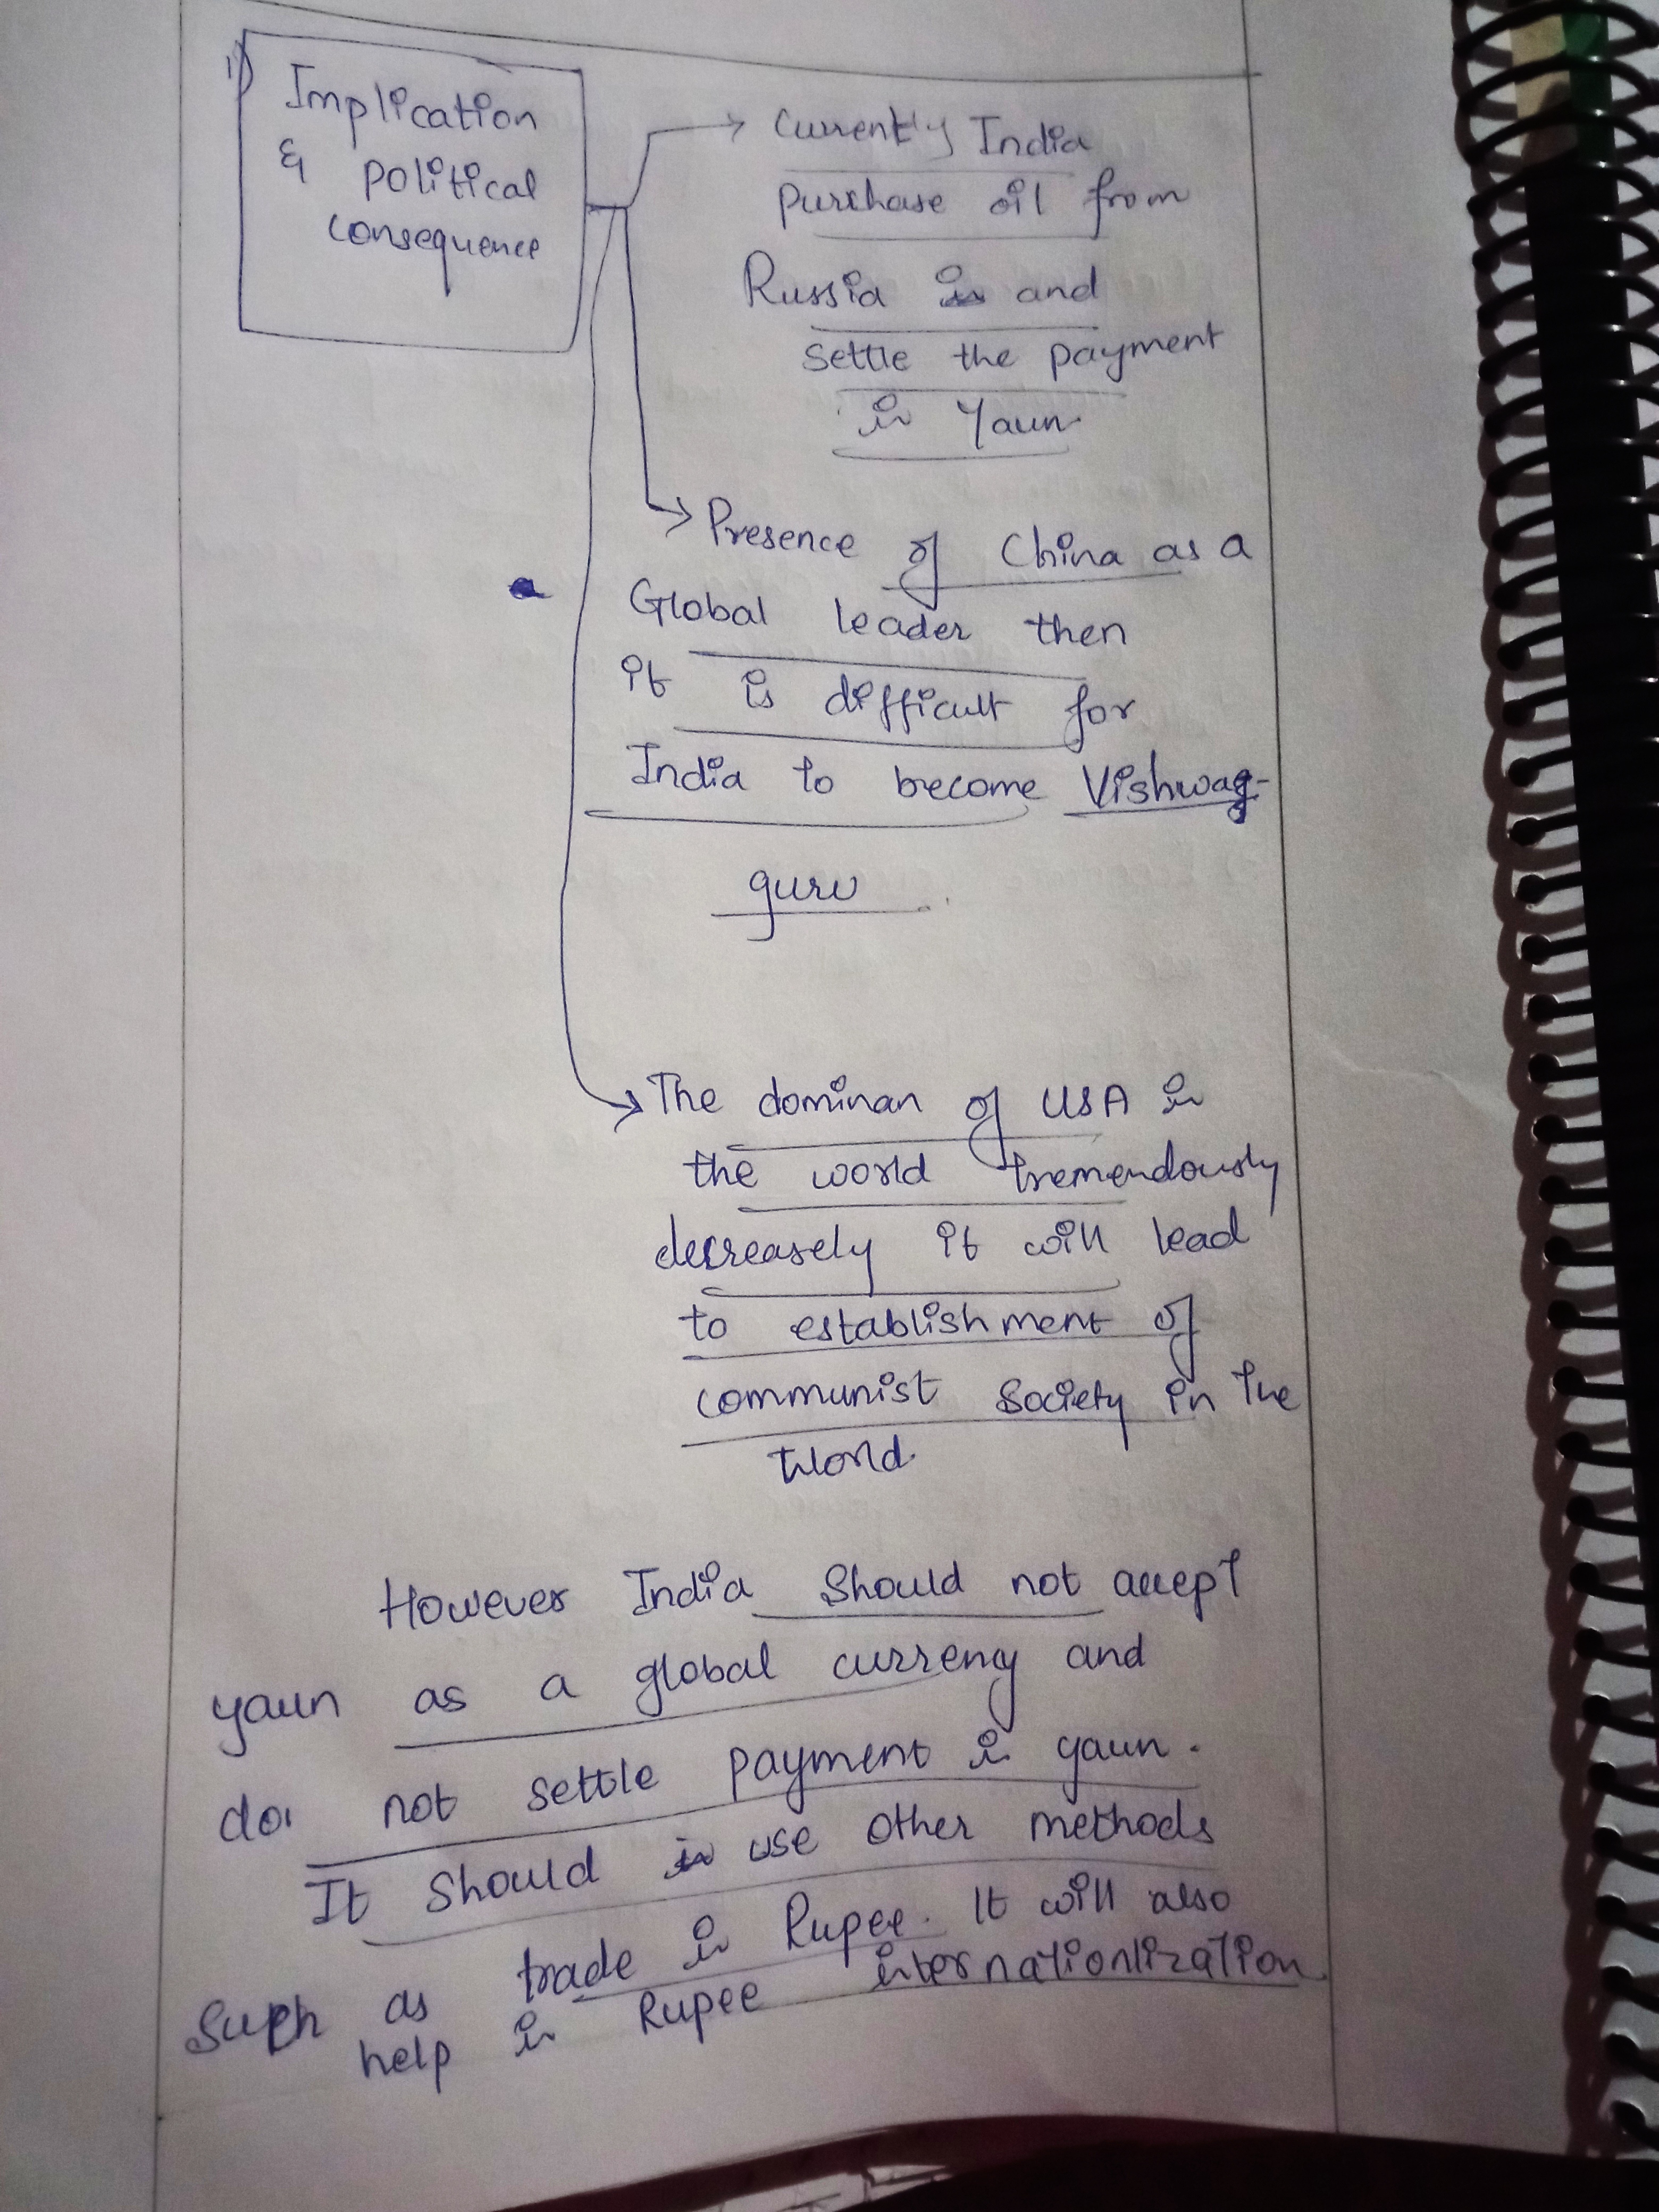 1) Implication
& political
consequence
→ Currently India
purchase oil from
Russia in and
settle the payment
in Yaun
→ Presence of China as a
Global leader then
it is difficult for
India to become Vishwag-
guru
→ The dominan of USA in
the world tremendously
decreasely it will lead
to establishment of
communist Society in the
World
However India Should not accept
yaun as a global curreny and
do not settle payment in yaun.
It Should in use other methods
Such as trade in Rupee. It will also
help in Rupee internationlization